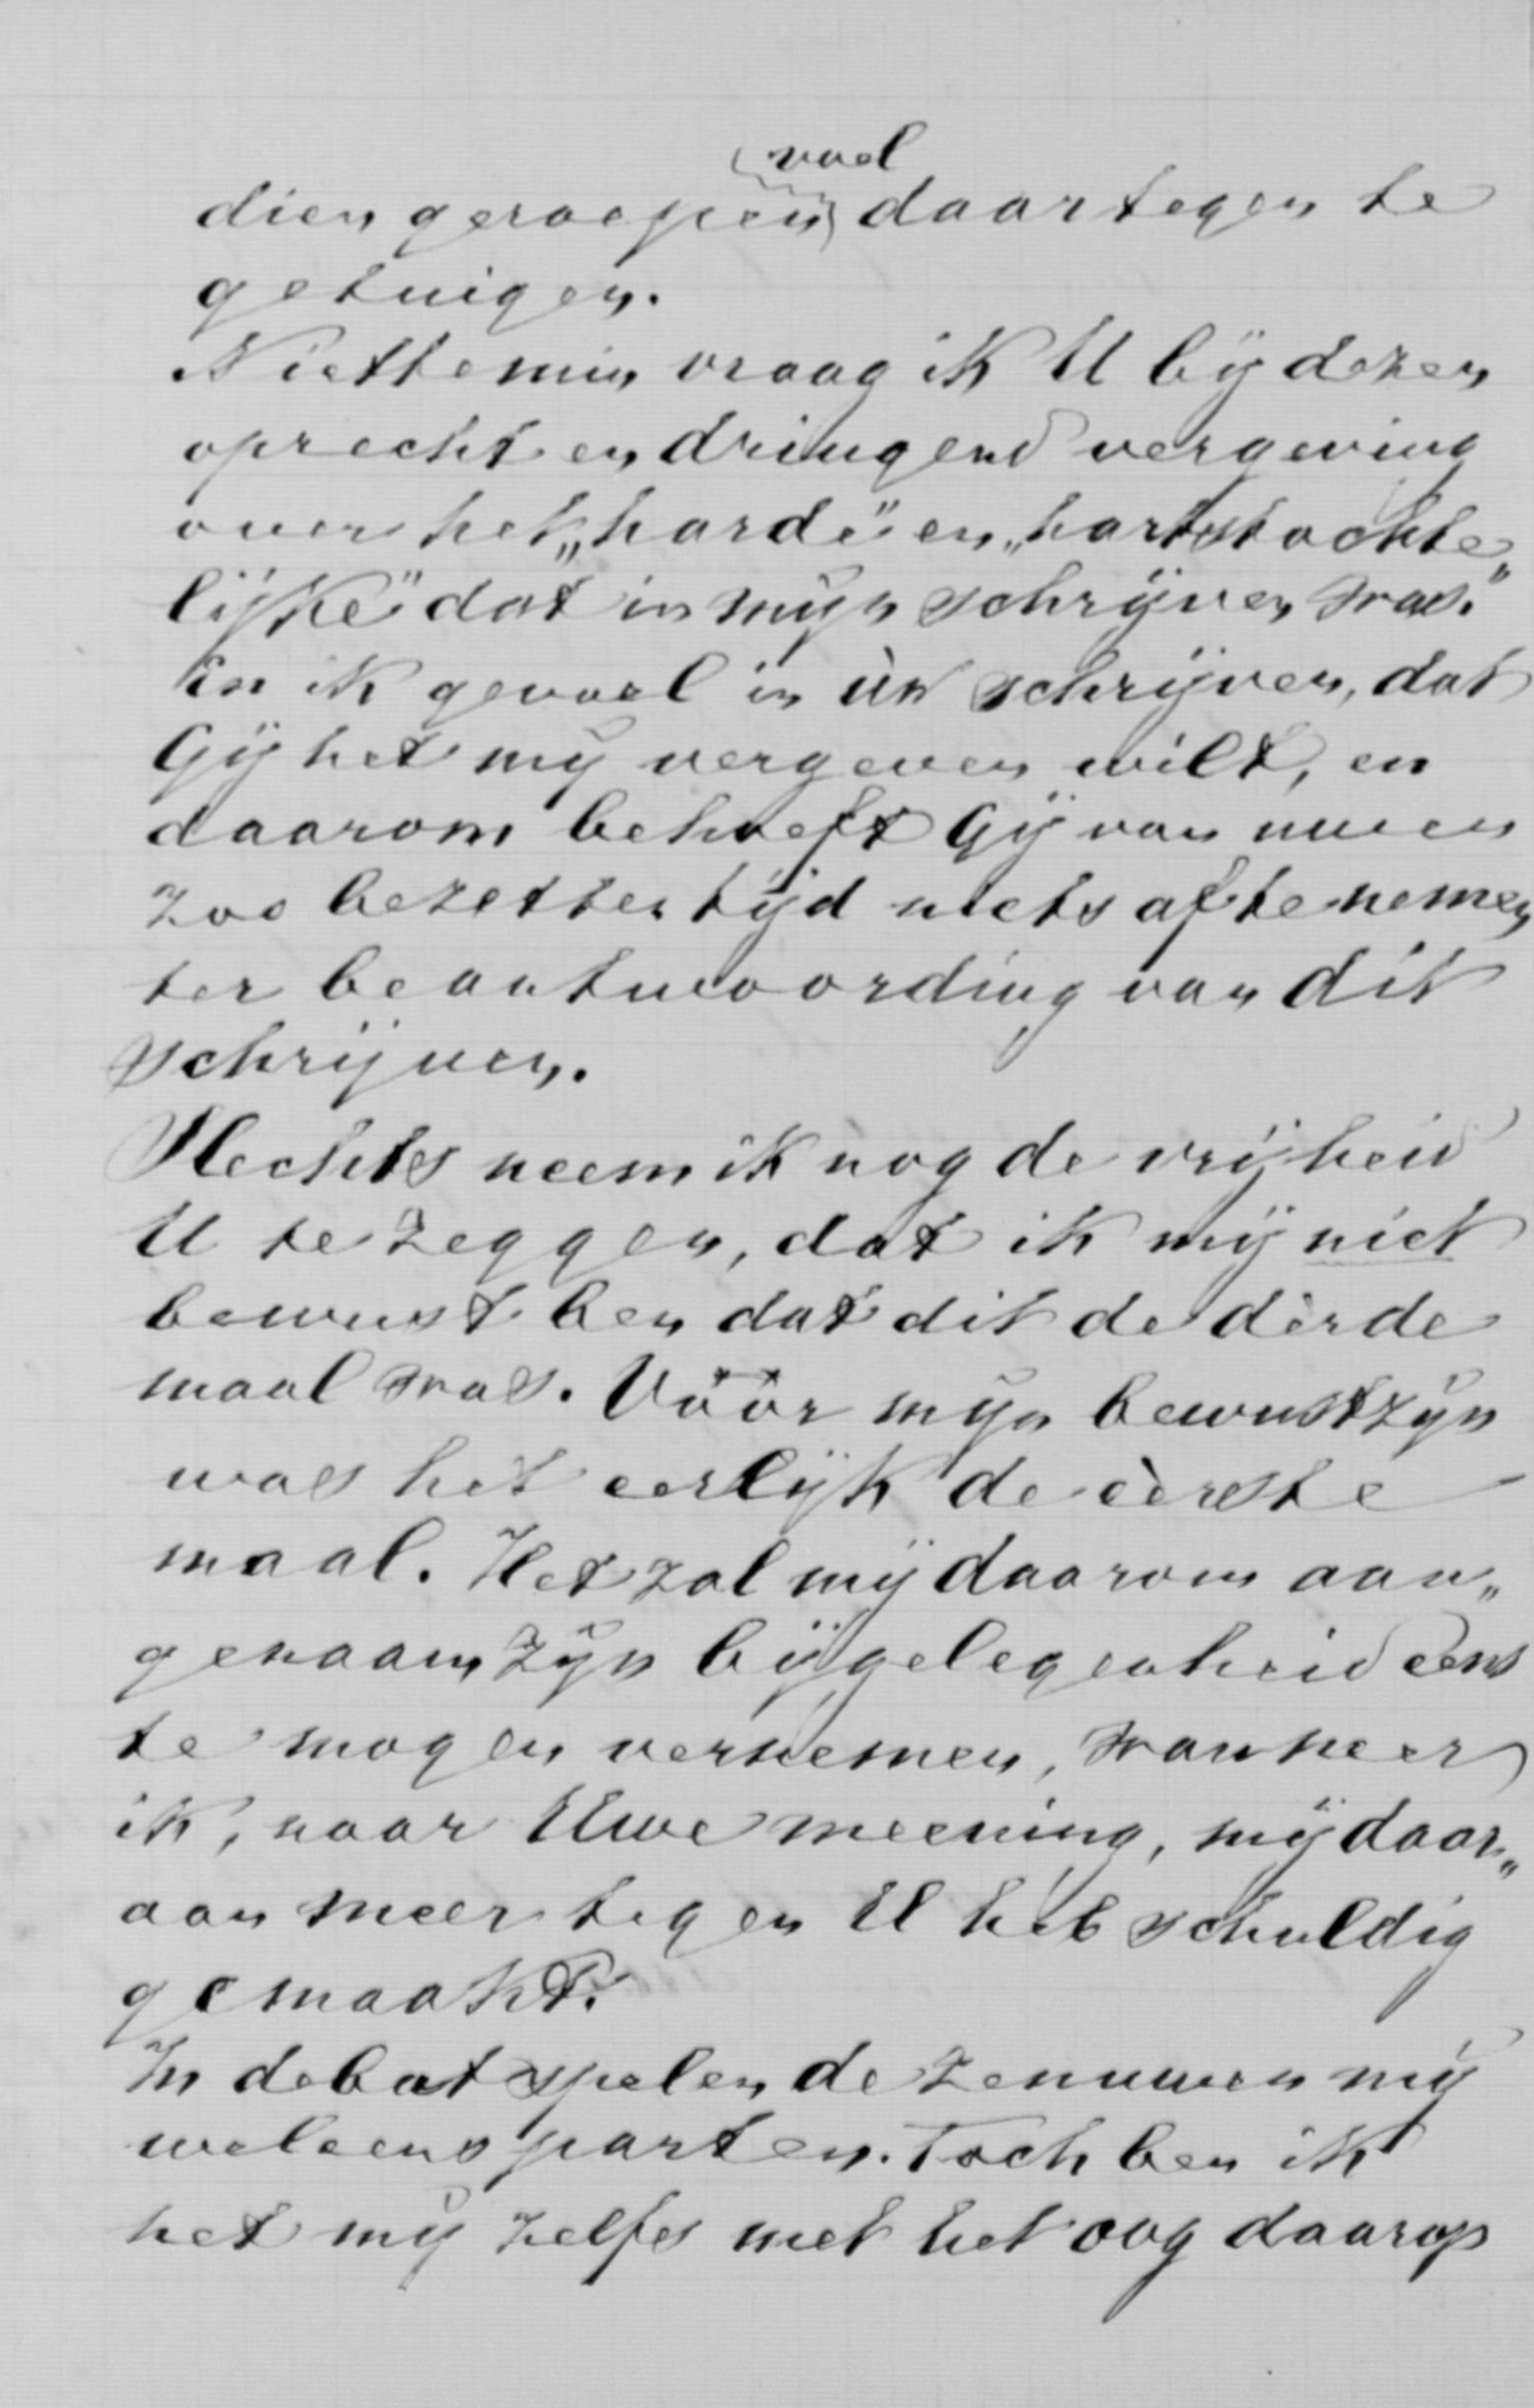 voel
dien geroepen daartegen te
getuigen.
Niettemin vraag ik U bij dezen
oprecht en dringend vergeving
over het „harde" en „hartstochte„
lijke" dat in mijn schrijven was.
En ik gevoel in ùw schrijven, dat
Gij het mij vergeven wilt, en
daarom behoeft Gij van uwen
zoo bezetten tijd niets af te nemen
ter beantwoording van dit
schrijven.
Slechts neem ik nog de vrijheid
U te zeggen, dat ik mij niet
bewust ben dat dit de dèrde
maal was. Vóór mijn bewustzijn
was het eerlijk de èerste
maal. Het zal mij daarom aan„
genaam zijn bij gelegenheid eens
te mogen vernemen, wanneer
ik, naar Uwe meening, mij daar„
aan meer tegen U heb schuldig
gemaakt.
In debat spelen de zenuwen mij
weleens parten. Toch ben ik
het mij zelfs met het oog daarop